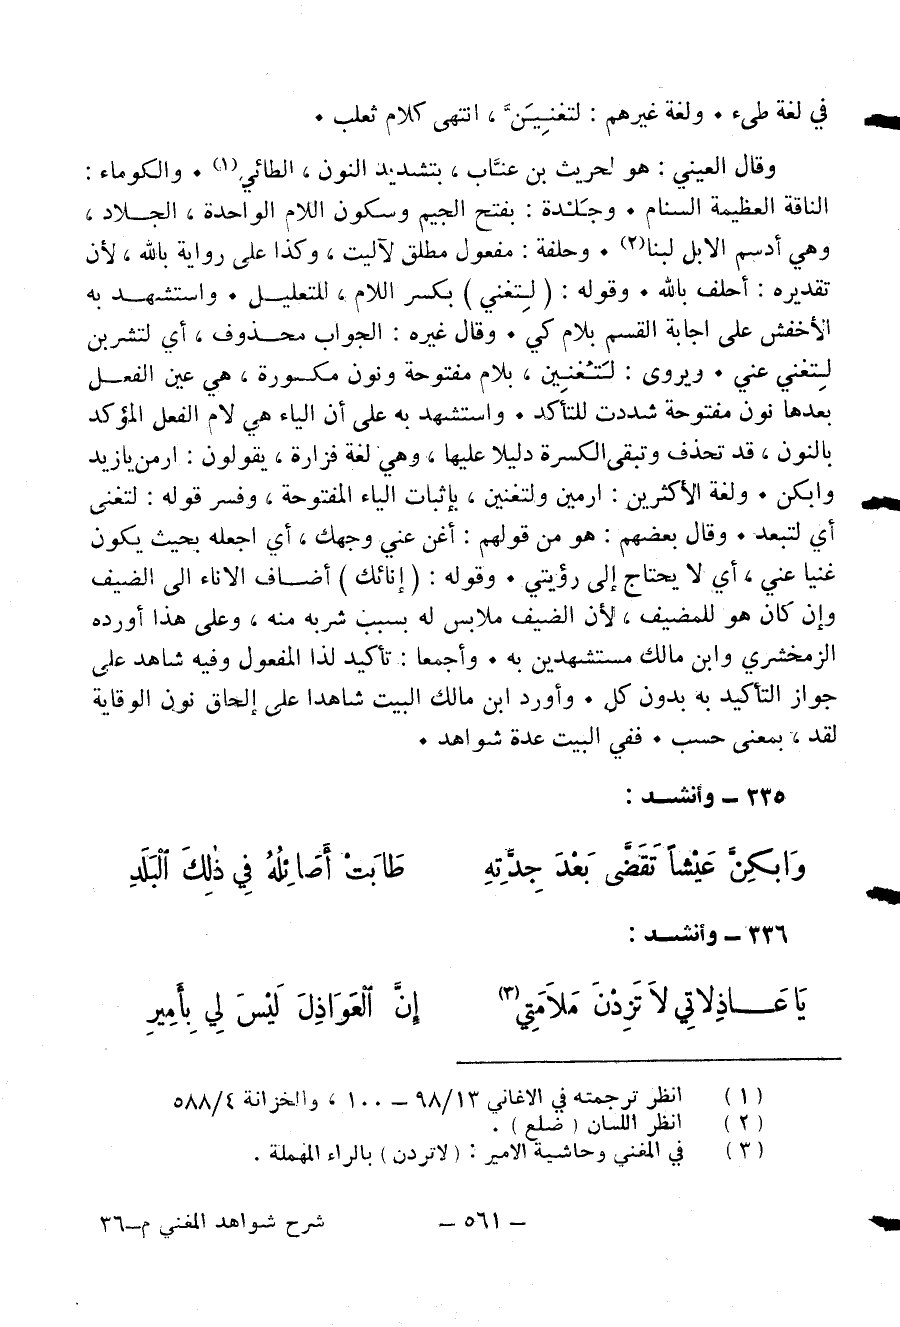 في لغة طيء ٠ ولغة غيرهم : لتغنِيَنَّ ، انتهى كلام ثعلب ٠
وقال العيني : هو لحريث بن عنّاب ، بتشديد النون ، الطائي(١) ٠ والكوماء :
الناقة العظيمة السنام ٠ وجَلْدة : بفتح الجيم وسكون اللام الواحدة ، الجلاد ،
وهي أدسم الابل لبنا(٢) ٠ وحلفة : مفعول مطلق لآليت ، وكذا على رواية بالله ، لأن
تقديره : أحلف بالله ٠ وقوله : ( لِتغني ) بكسر اللام ، للتعليل ٠ واستشهد به
الأخفش على اجابة القسم بلام كي ٠ وقال غيره : الجواب محذوف ، أي لتشربن
لِتغني عني ٠ ويروى : لَتغنِين ، بلام مفتوحة ونون مكسورة ، هي عين الفعل
بعدها نون مفتوحة شددت للتأكد ٠ واستشهد به على أن الياء هي لام الفعل المؤكد
بالنون ، قد تحذف وتبقى الكسرة دليلا عليها ، وهي لغة فزارة ، يقولون : ارمن يازيد
وابكن ٠ ولغة الأكثرين : ارمين ولتغنين ، بإثبات الياء المفتوحة ، وفسر قوله : لتغنى
أي لتبعد ٠ وقال بعضهم : هو من قولهم : أغن عني وجهك ، أي اجعله بحيث يكون
غنيا عني ، أي لا يحتاج إلى رؤيتي ٠ وقوله : ( إنائك ) أضاف الاناء الى الضيف
وإن كان هو للمضيف ، لأن الضيف ملابس له بسبب شربه منه ، وعلى هذا أورده
الزمخشري وابن مالك مستشهدين به ٠ وأجمعا : تأكيد لذا المفعول وفيه شاهد على
جواز التأكيد به بدون كل ٠ وأورد ابن مالك البيت شاهدا على إلحاق نون الوقاية
لقد ، بمعنى حسب ٠ ففي البيت عدة شواهد ٠
٣٣٥ – وأنشد :
وَابكِنَّ عَيْشاً تَقَضَّى بَعْدَ جِدَّتِهِ طَابَتْ أَصَائِلُهُ فِي ذٰلِكَ البَلَدِ
٣٣٦ – وأنشد :
يَا عَاذِلاتِي لاَ تَزِدْنَ مَلاَمَتِي(٣) إِنَّ العَوَاذِلَ لَيْسَ لِي بِأَمِيرِ
(١) انظر ترجمته في الاغاني ٩٨/١٣ – ١٠٠ ، والخزانة ٥٨٨/٤
(٢) انظر اللسان ( ضلع ) .
(٣) في المغني وحاشية الامير : ( لاتردن ) بالراء المهملة .
– ٥٦١ – شرح شواهد المغني م–٣٦